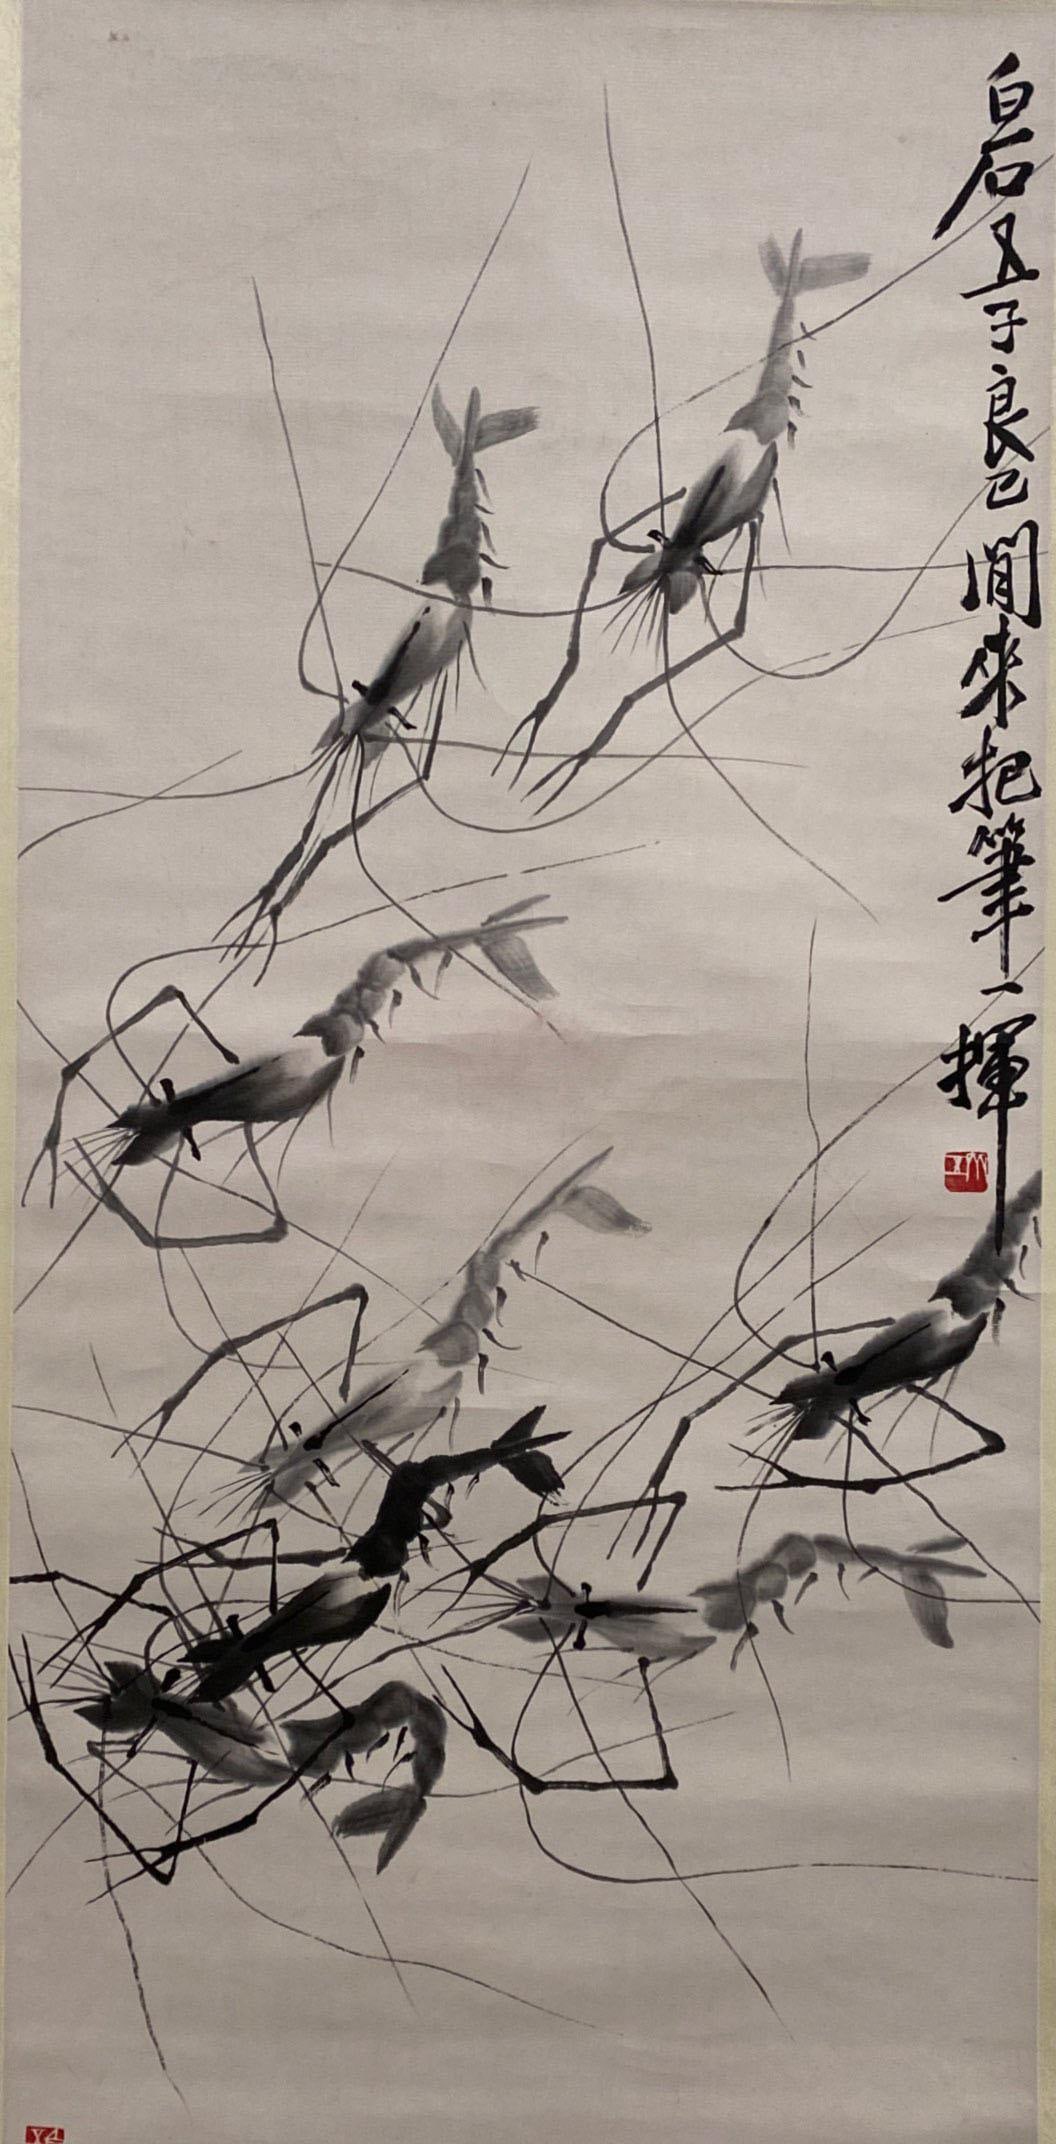 白石五子良已閒來把筆一揮